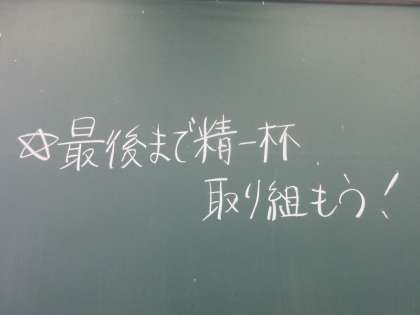 ☆最後まで精一杯
取り組もう!